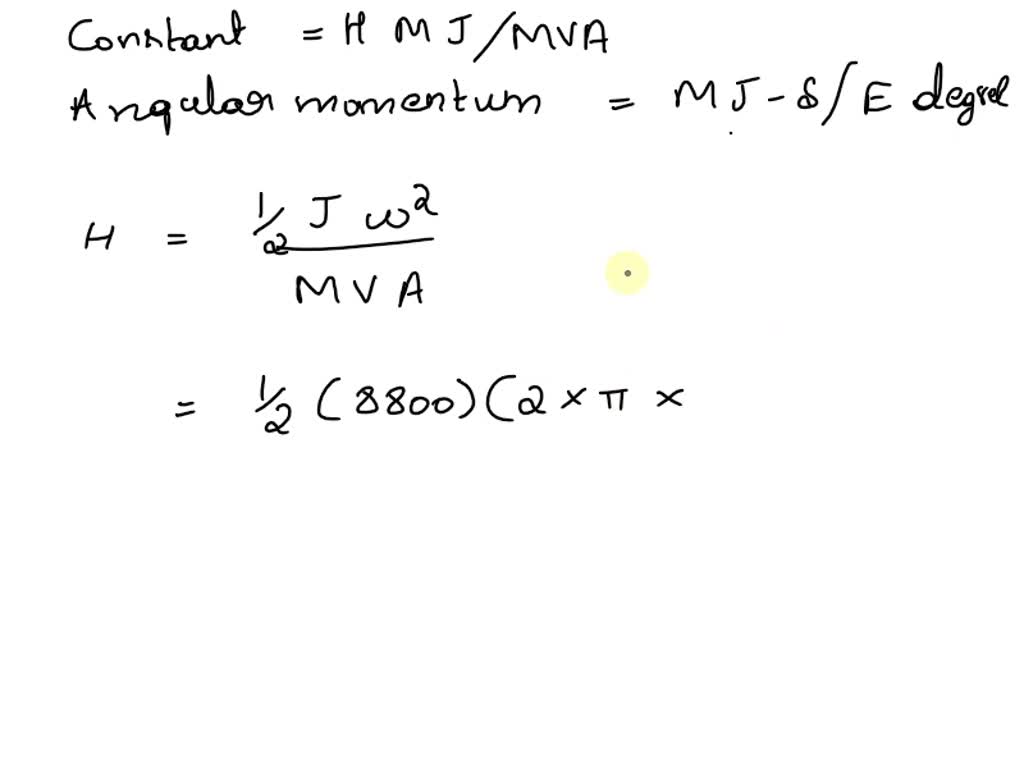 Constant = H MJ/MVA
Angular momentum = MJ-s/E degree
H = 1/2 J ω²
MVA
= 1/2 (8800)(2 × π ×